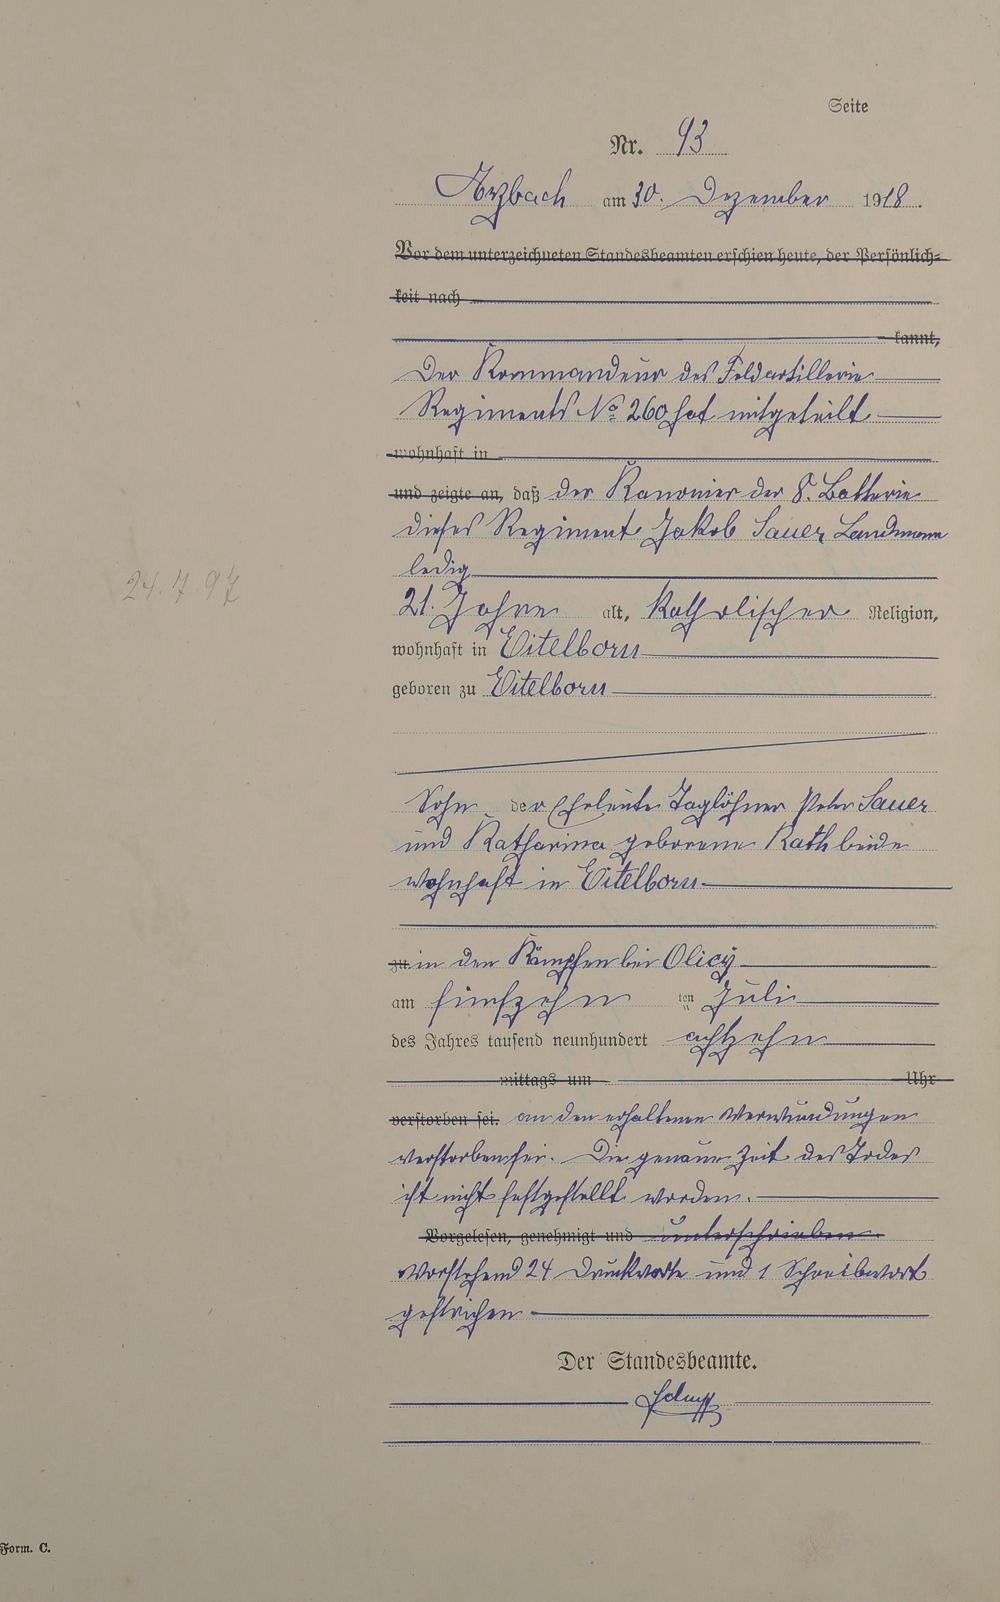 Seite
Nr. 93
Arzbach am 30. Dezember 1918.
Vor dem unterzeichneten Standesbeamten erschien heute, der Persönlich-
keit nach
kannt,
Der Kommandeur des Feldartillerie
Regiments No 260 hat mitgeteilt
wohnhaft in
und zeigte an, daß der Kanonier der 8. Batterie
dieses Regiment Jakob Sauer Landmann
ledig
24.7 97
21. Jahre alt, katholischer Religion,
wohnhaft in Eitelborn
geboren zu Eitelborn
Sohn der Eheleute Taglöhner Peter Sauer
und Katharina geborene Kath beide
wohnhaft in Eitelborn
zu in den Kämpfen bei Olicy
am fünfzehn ten Juli
des Jahres tausend neunhundert achtzehn
mittags um Uhr
verstorben sei. an den erhaltenen Verwundungen
verstorben sei. Die genaue Zeit des Todes
ist nicht festgestellt worden.
Vorgelesen, genehmigt und unterschrieben
Vorstehend 24 Druckworte und 1 Schreibwort
gestrichen
Der Standesbeamte.
Form. C.